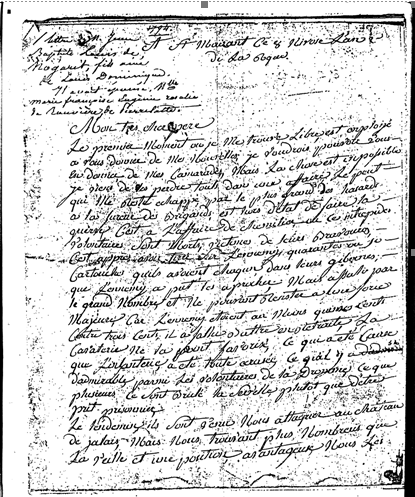 1 Lettre de M. Jean
Baptiste Louis de
fils aîné
de Louis Dominique.
Il avait épousé Mlle
marie françoise Eugénie rosalie
de
A St Maixant Ce 8 Nivose L'an 2
de La
Mon tres cher pere
Le premier Moment ou je Me trouve Libre est employé
a vous donner de Mes Nouvelles, je voudrois pouvoir vous
en donner de Mes Camarades, Mais La chose est impossible
je viens de Les perdre touts dans une affaire Le peu
qui Me reste echappé par le plus grand des hazard
a la fureur des Brigands est hors d'état de faire La
guerre C'est a L'affaire de Chemillé que ces intrepides
volontaires sont Morts, victimes de leurs Bravoures,
C'est apres avoir tiré sur L'ennemy quarante ou
Cartouches qu'ils avoient chaqun dans leurs gibernes,
que L'ennemy a put les aprocher Mais affaibli par
le grand Nombre et Ne pouvant resister a une force
Majeure Car L'ennemy etoient au Moins quinze Cents
Contre trois Cents, il a fallu Battre en retraite La
Cavalerie Ne la pas ce qui a été Cause
que L'infanterie a été toute Ce qu'il y a
d'admirable parmi Les volontaires de la C'est que
plusieurs Ce sont Brulé la Cervelle plutot que d'être
prit prisonnier
Le Lendemain ils sont venu Nous attaquer au chateau
de jalais Mais Nous, trouvant plus Nombreux que
La veille et une position avantageuse Nous Les